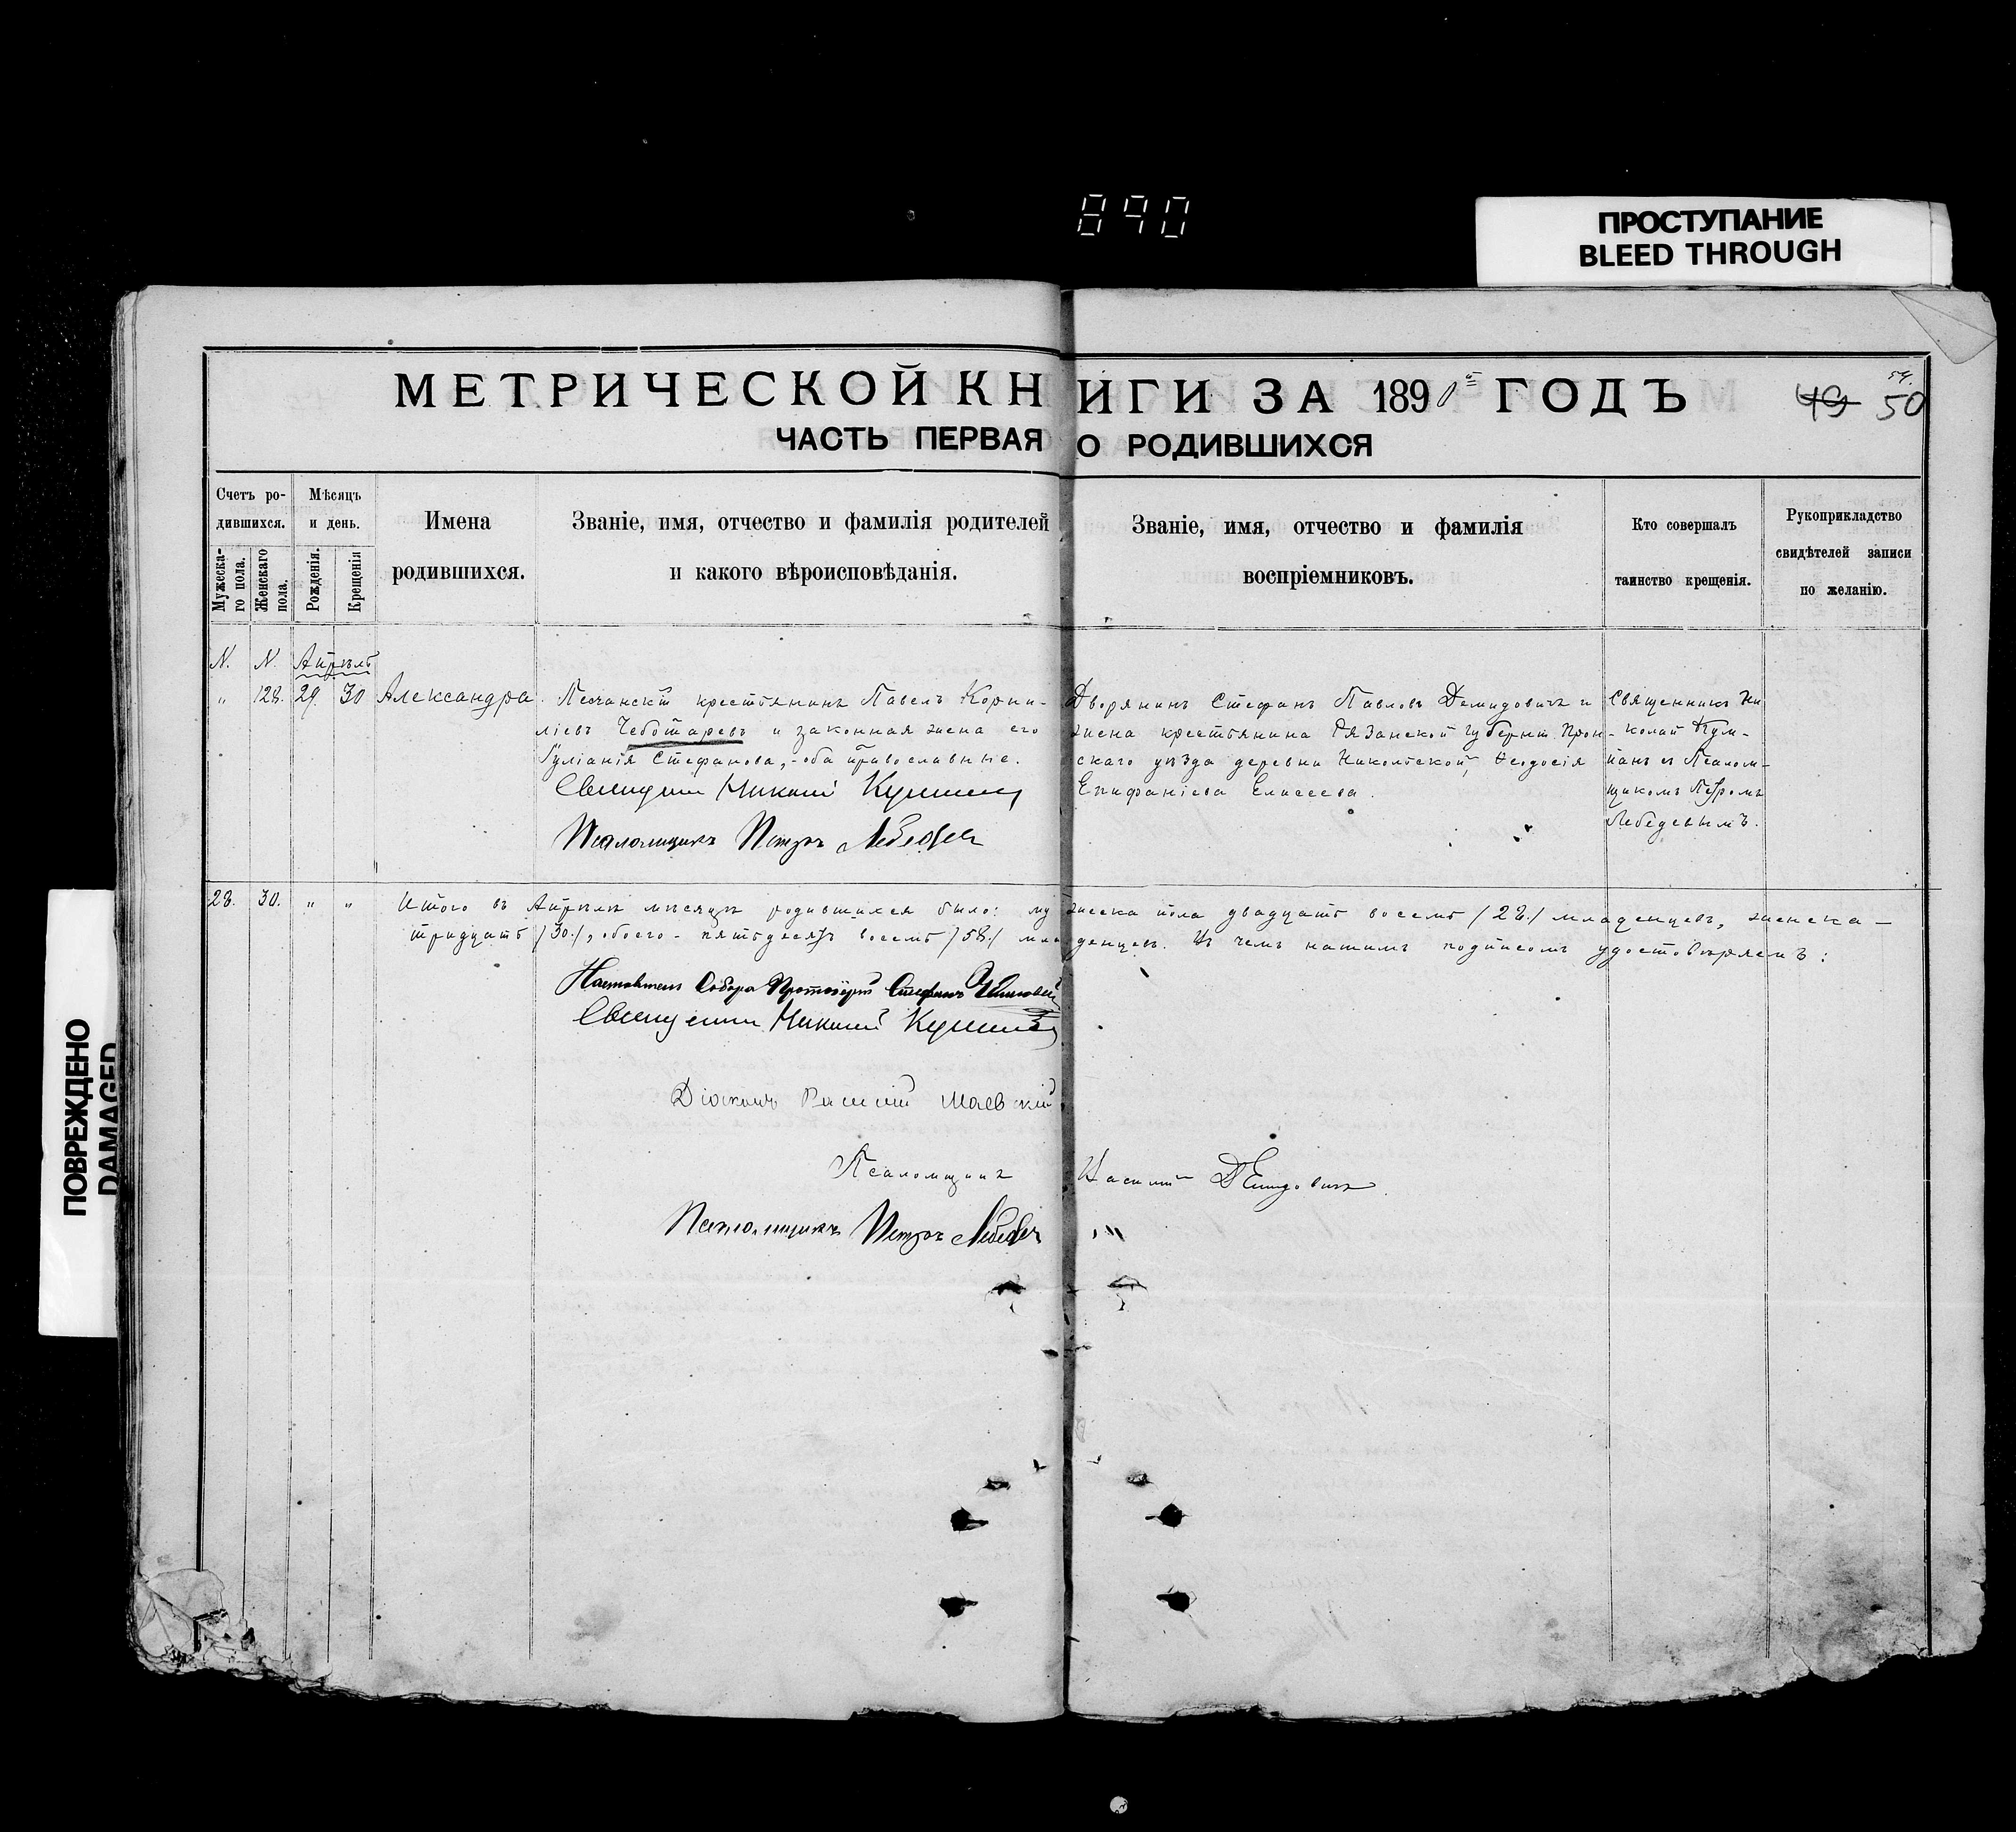 890
ПРОСТУПАНИЕ
BLEED THROUGH
ПОВРЕЖДЕНО
DAMAGED
МЕТРИЧЕСКОЙ КНИГИ ЗА 1890й ГОДЪ
49 50
ЧАСТЬ ПЕРВАЯ О РОДИВШИХСЯ
Счетъ ро-
дившихся.
Мужеска-
го пола.
Женскаго
пола.
Мѣсяцъ
и день.
Рожденія.
Крещенія
Имена
родившихся.
Званіе, имя, отчество и фамилія родителей
и какого вѣроисповѣданія.
Званіе, имя, отчество и фамилія
воспріемниковъ.
Кто совершалъ
таинство крещенія.
Рукоприкладство
свидѣтелей записи
по желанію.
N. N. Апрѣль
" 128. 29. 30 Александра.
Песчанскій крестьянинъ Павелъ Корни-
ліевъ Чеботаревъ и законная жена его
Іуліанія Стефанова, - оба православные.
Священникъ Николай
Псаломщикъ Петръ Лебедев
Дворянинъ Стефанъ Павловъ Демидовичъ и
жена крестьянина Рязанской губерніи Прон-
скаго уѣзда деревни Никольской, Ѳеодосія
Епифаніева Елисеева.
Священникъ Ни-
колай
съ Псалом-
щикомъ Петромъ
Лебедевымъ.
28. 30. " " Итого въ Апрѣлѣ мѣсяцѣ родившихся было: мужеска пола двадцать восемь /28./ младенцевъ, женска -
тридцать /30./, обоего - пятьдесятъ восемь /58./ младенцевъ. Въ чемъ нашимъ подписомъ удостовѣряемъ:
Настоятель Собора Протоіерей Стефанъ
Священникъ Николай
Діаконъ Василій Маевскій
Псаломщикъ Василій Демидовичъ.
Псаломщикъ Петръ Лебедев